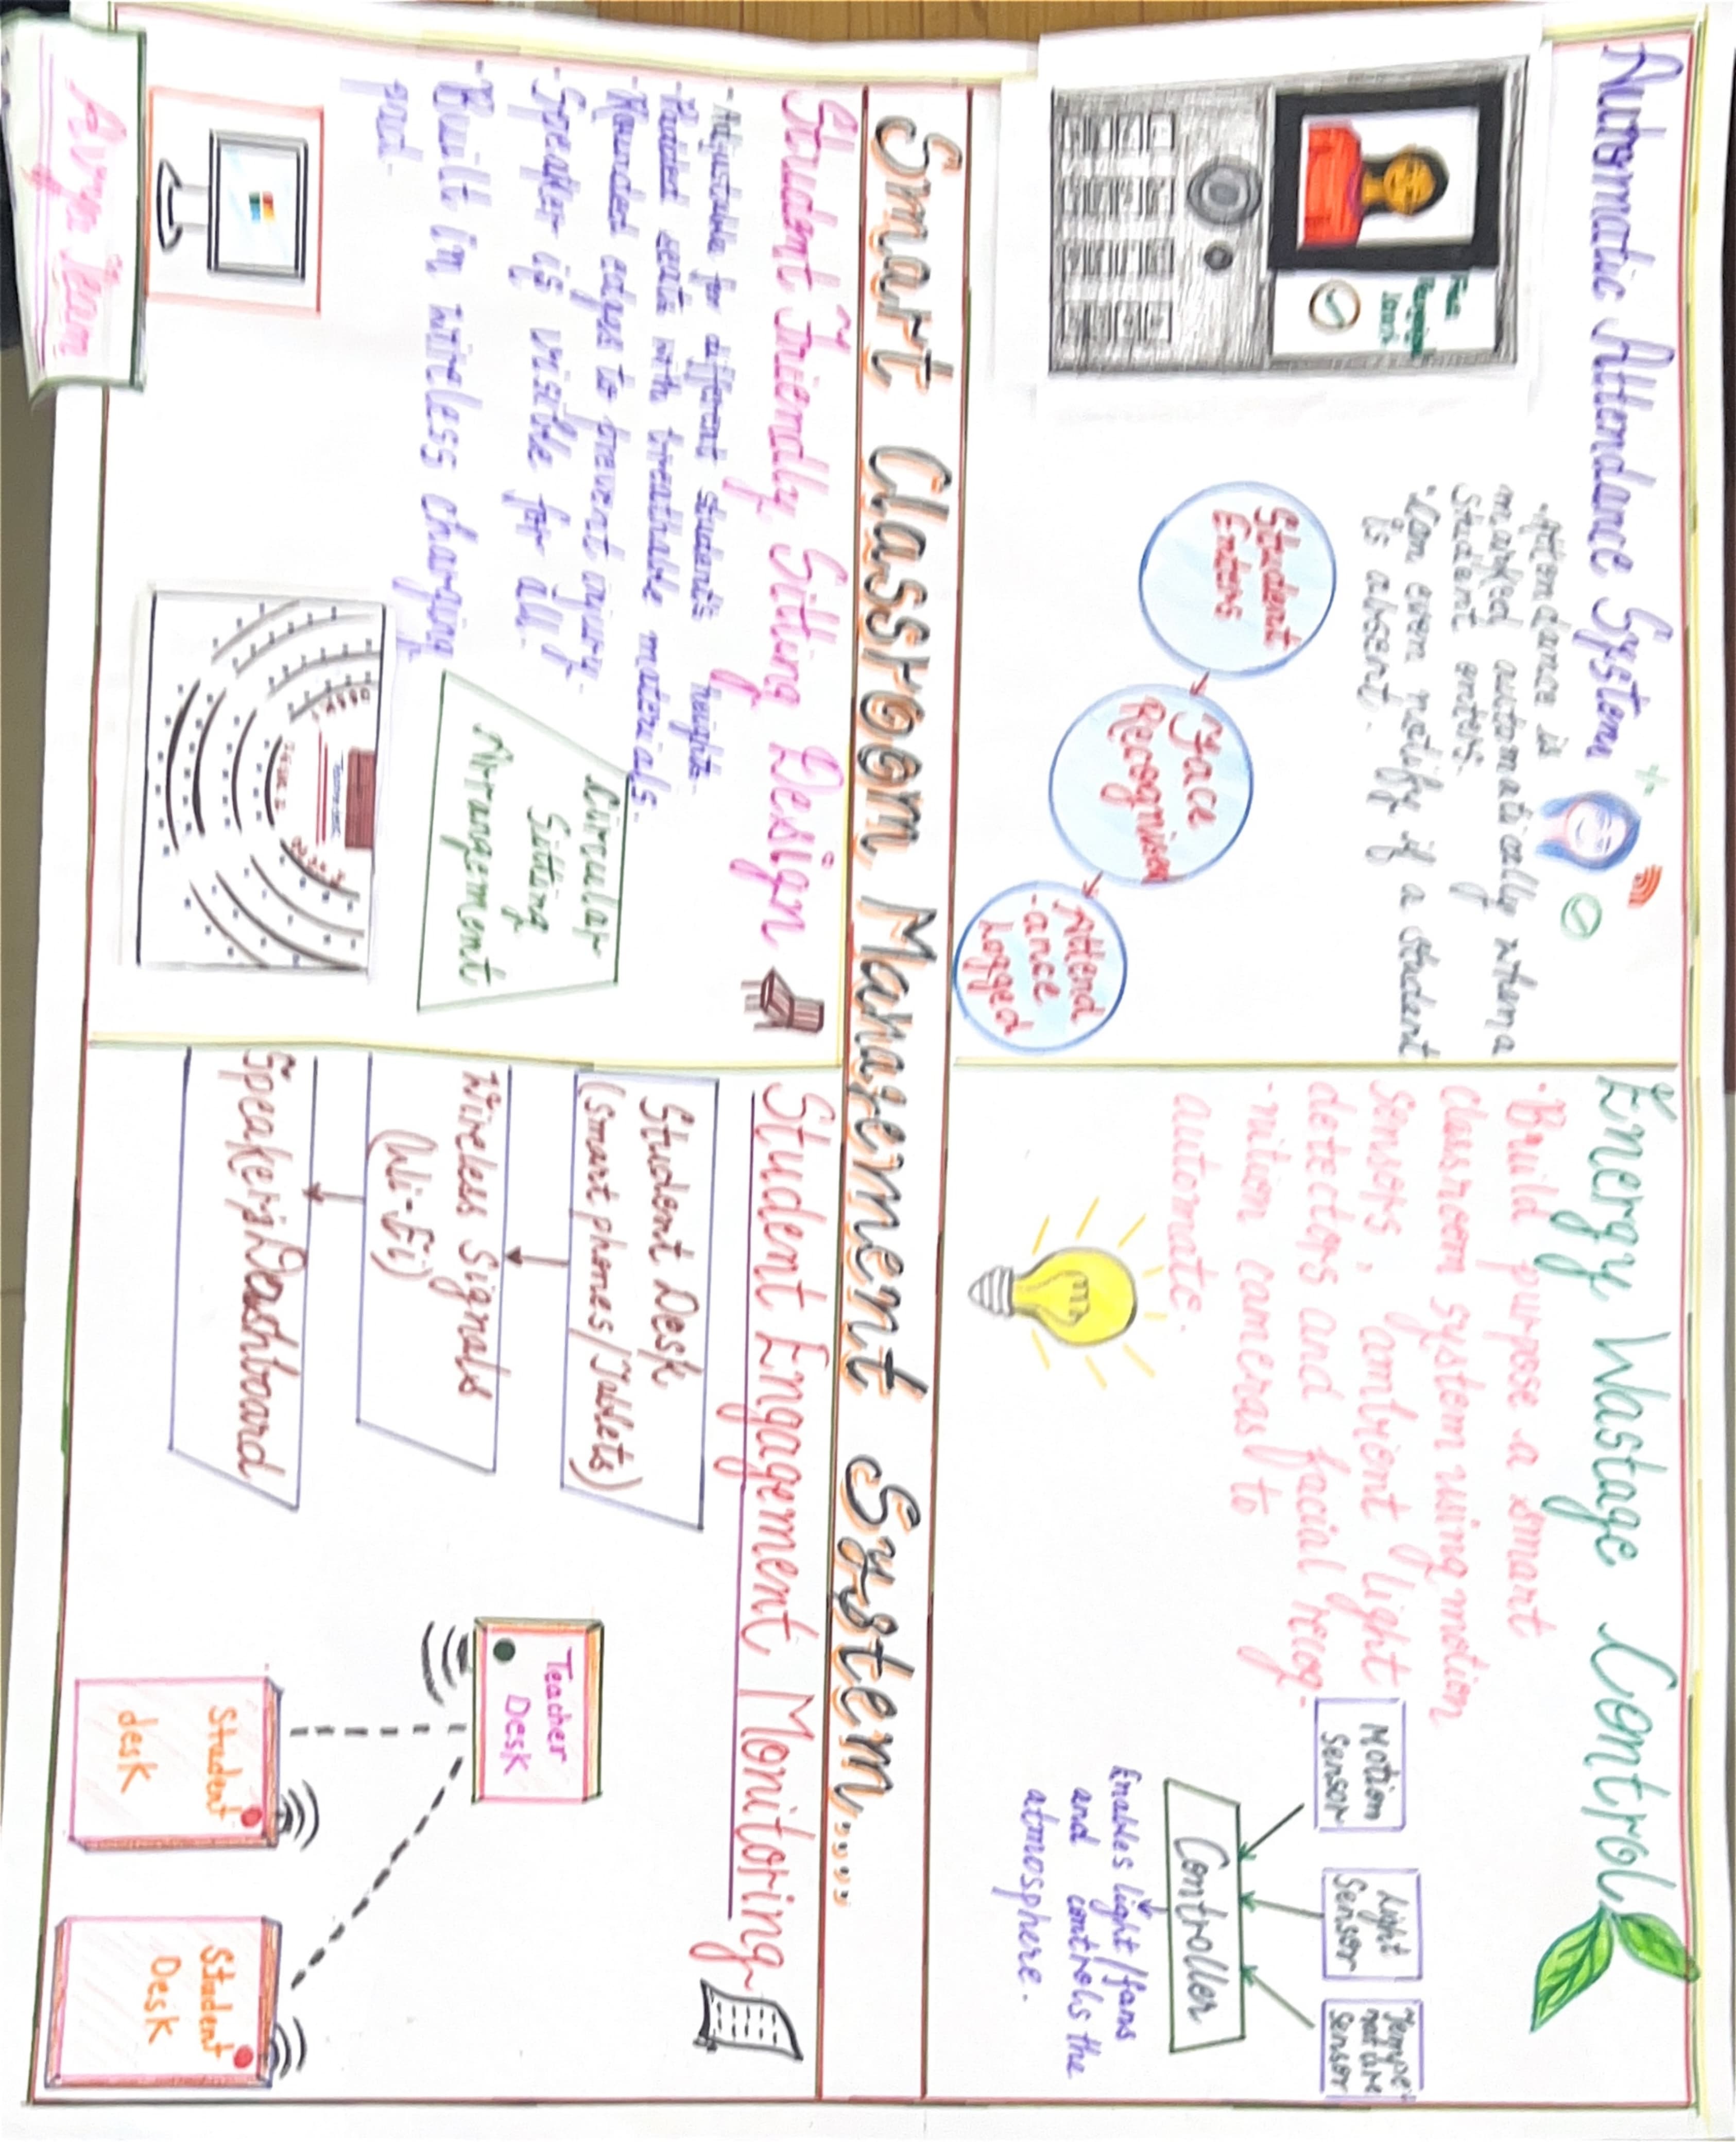 Automatic Attendance System
Face
Recognition
-Attendance is
marked automatically when a
student enters.
·Can even notify if a student
is absent.
Student
Enters
Face
Recognition
Attend
-ance
Logged
Energy Wastage Control
·Build purpose a smart
classroom system using motion
sensors, ambient light
detectors and facial recog-
-nition cameras to
automate.
Motion
Sensor
Light
Sensor
Sensor
Controller
Enables light/fans
and controls the
atmosphere.
Smart Classroom Management System.....
Student Friendly Sitting Design
-Adjustable for different student's heights.
-Padded seats with breathable materials.
-Rounded edges to prevent injury.
-Speaker is visible for all.
-Built in wireless charging
pad.
Circular
Sitting
Arrangement
Student Engagement Monitoring
Student Desk
(smart phones/Tablets)
Wireless Signals
(Wi-Fi)
Speaker's Dashboard
Teacher
Desk
Student
desk
Student
Desk